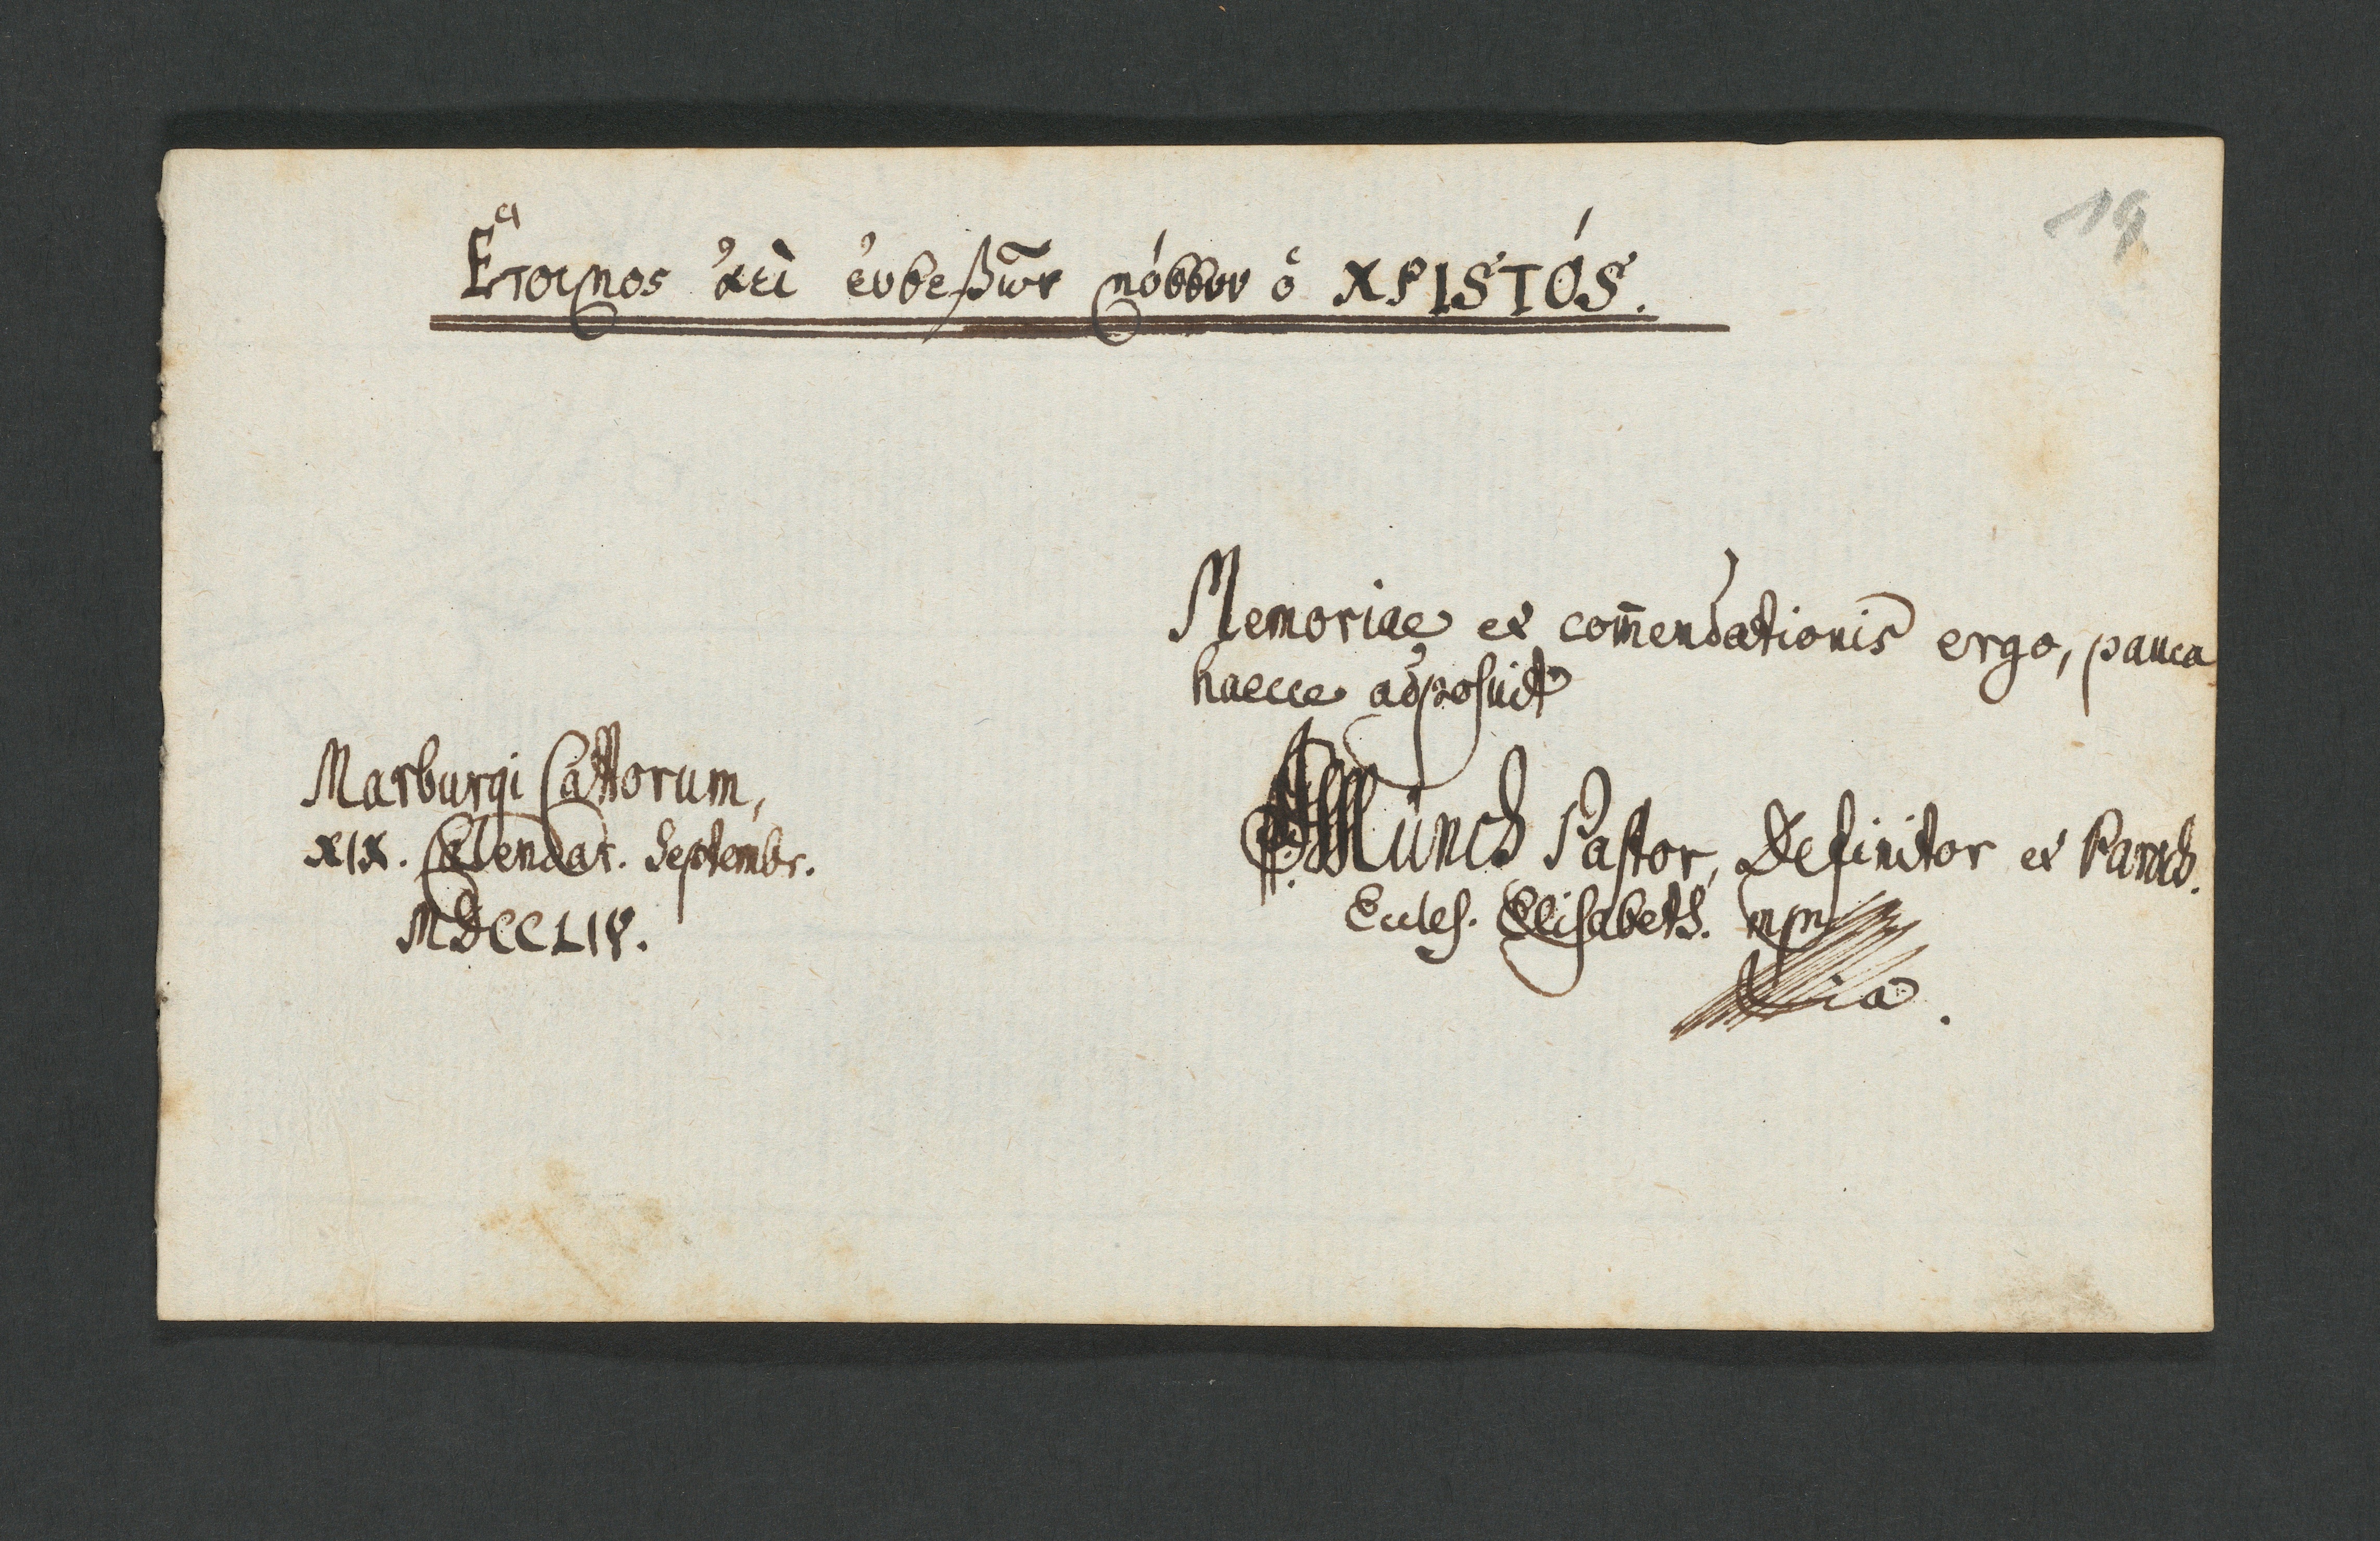 19
Ἕτοιμος ἀεὶ εὐσεβῶν πόσσιν ὁ ΧΡΙSΤΌS.
Memoriae et com̄endationis ergo, pauca
haecce adposuit
Münch Pastor, Definitor et Paroch.
Eccles. Elisabeth. mpr
ia.
Marburgi Cattorum,
XIX. Calendar. Septembr.
MDCCLIV.